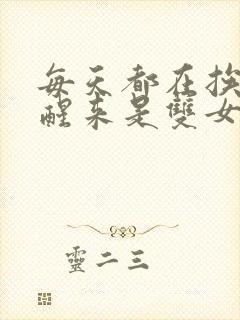 每天都在挨
醒来是雙女
靈二三